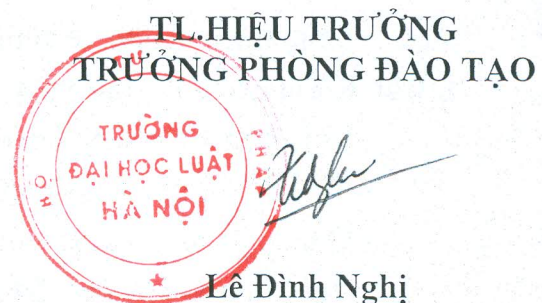 TL.HIỆU TRƯỞNG
TRƯỞNG PHÒNG ĐÀO TẠO
TRƯỜNG
ĐẠI HỌC LUẬT
HÀ NỘI
Lê Đình Nghị